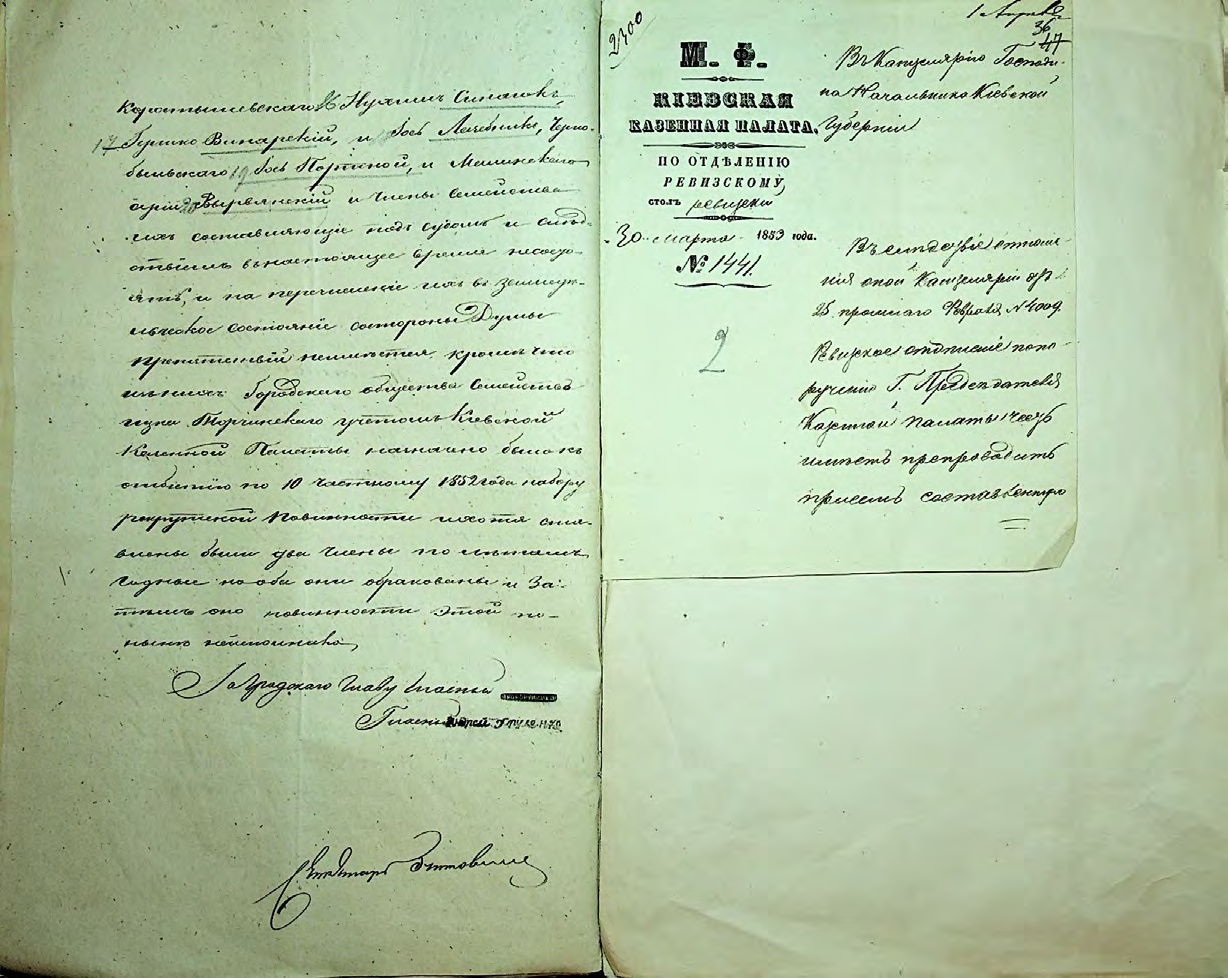 Коростышевскаго 16 Нухимъ
17 Гершко Винарскій, и Іось Лечебникъ, Черно-
быльскаго 19 Іось Портной, и Малинскаго
и члены Семействъ
ихъ составляющіе подъ судомъ и слѣд-
ствіемъ въ настоящее время несосто-
ятъ, и на перечисленіе ихъ въ Земледѣ-
льческое состояніе состороны Думы
препятствій неимѣется, кромѣ что
изъ нихъ Городскаго общества Семейство
учетомъ Кіевской
Казенной Палаты назначено было къ
отбытію по 10 частному 1852 года набору
рекрутской повинности и хотя
были два члены по лѣтамъ
годные но оба они обракованы и за
тѣмъ оно повинности этой по-
нынѣ неисполнило,
За Градскаго Главу Гласный
Гласный Андрей
Секретарь
2300
1 Апрѣля
36
47
М. Ф.
КІЕВСКАЯ
КАЗЕННАЯ ПАЛАТА.
ПО ОТДѢЛЕНІЮ
РЕВИЗСКОМУ,
столъ ревизскій
30 марта 1853 года.
№ 1441.
2
Въ Канцелярію Господи-
на Начальника Кіевской
Губерніи
Въ слѣдствіе отноше-
нія оной Канцеляріи отъ
25 прошлаго Февраля № 4009.
Ревизское отдѣленіе попо-
рученію Г. Предсѣдателя
Казенной палаты честь
имѣетъ препроводить
присемъ